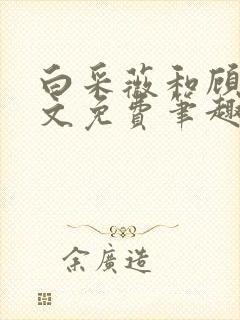 白采薇和顾
文免费笔趣
余廣造